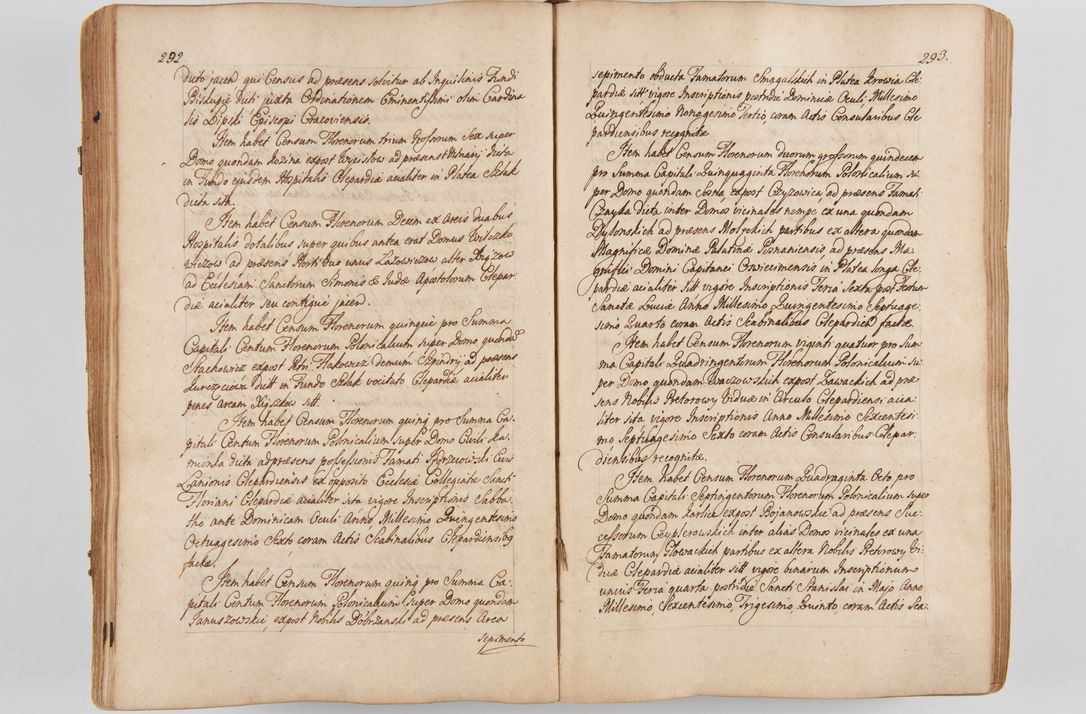 292
dicto jacen qui Census ad præsens solvitur ab Inquilinis Fundi
Biskupie dicti juxta Ordinationem Eminentissimi olim Cardina
lis Lipski Episcopi Cracoviensis.
Item habet Censum Florenorum trium Grossorum Sex super
Domo quondam Rozina expost ad præsens dicta
in Fundo ejusdem Hospitalis Clepardiæ aciali​ter in Platea Szlak
dicta sita.
Item habet Censum Florenorum Decem ex Areis duabus
Hospitalis dotalibus super quibus antea erat Domus
wiczow ad præsens Horti duo unus Lazowezow alter Rigszow
ad Ecclesiam Sanctorum Simonis & Judæ Apostolorum Clepar
diæ acialiter seu contigue jacen.
Item habet Censum Florenorum quinque pro Summa
Capitali Centum Florenorum Polonicalium super Domo quondam
Stachowicz expost Petri Flakowicz demum ad præsens
dict in Fundo Szlak vocitato Clepardiæ acialiter
penes Aream Rigszkow sitt.
Item habet Censum Florenorum quinq pro Summa Ca-
pitali Centum Florenorum Polonicalium super Domo Civili Ka
mionka dicta ad præsens possessionis Famati Jędrzeiowski Civis
Lanionis Clepardiensis ex opposito Ecclesiæ Collegiatæ Sancti
Floriani Clepardiæ acialiter sita vigore Inscriptionis Sabba
tho ante Dominicam Oculi Anno Millesimo Quingentesimo
Octuagesimo Sexto coram Actis Scabinalibus Clepardiensibg
factæ.
Item habet Censum Florenorum quinq pro Summa Ca-
pitali Centum Florenorum Polonicalium super Domo quondam
Januszowskie, expost Nobilis Dobrzanski ad præsens Area
sepimento
293.
sepimento obducta Famatorum Smagulskich in Platea Krowia Cle
pardiæ sitt vigore Inscriptionis postridie Dominicæ Oculi, Millesimo
Quingentesimo Nonagesimo Tertio, coram Actis Consularibus Cle
pardiensibus recognitæ
Item habet Censum Florenorum duorum grossorum quindecem
pro Summa Capitali Quinquaginta Florenorum Polonicalium su
per Domo quondam Sosna, expost Czyzowica, ad præsens Famati
Czayka dicta inter Domos vicinales nempe ex una quondam
Dylonskich ad præsens Molęckich partibus ex altera quondam
Magnificæ Dominæ Palatinæ Posnaniensis, ad præsens Ma
gnifici Domini Capitanei Osviecimensis in Platea longa Cle-
pardiæ acialiter sitt vigore Inscriptionis Feria Sexta post Festum
Sanctæ Luciæ Anno Millesimo, Quingentesimo Septuage
simo Quarto coram Actis Scabinalibus Clepardien factæ.
Item habet Censum Florenorum viginti quatuor pro Sum
ma Capitali Quadringentorum Florenorum Polonicalium su
per Domo quondam Waczowskich expost Zawackich ad præ
sens Nobilis Pretorowy Viduæ in Circulo Clepardiensi acia
liter sita vigore Inscriptionis Anno Millesimo Sexcentesi
mo Septuagesimo Sexto coram Actis Consularibus Clepar
diensibus recognitæ.
Item habet Censum Florenorum Quadraginta Octo, pro
Summa Capitali Septingentorum Florenorum Polonicalium super
Domo quondam Karlice expost Bojanowskie ad præsens Suc
cessorum Ceyplerowskich inter alias Domos vicinales ex una
Famatorum Głowackich partibus ex altera Nobilis Pretorowy Vi
duæ Clepardiæ acialiter sitt vigore binarum Inscriptionum
unius Feria quarta postridie Sancti Stanislai in Majo Anno
Millesimo, Sexcentesimo, Trigesimo, Quinto, coram Actis Sca